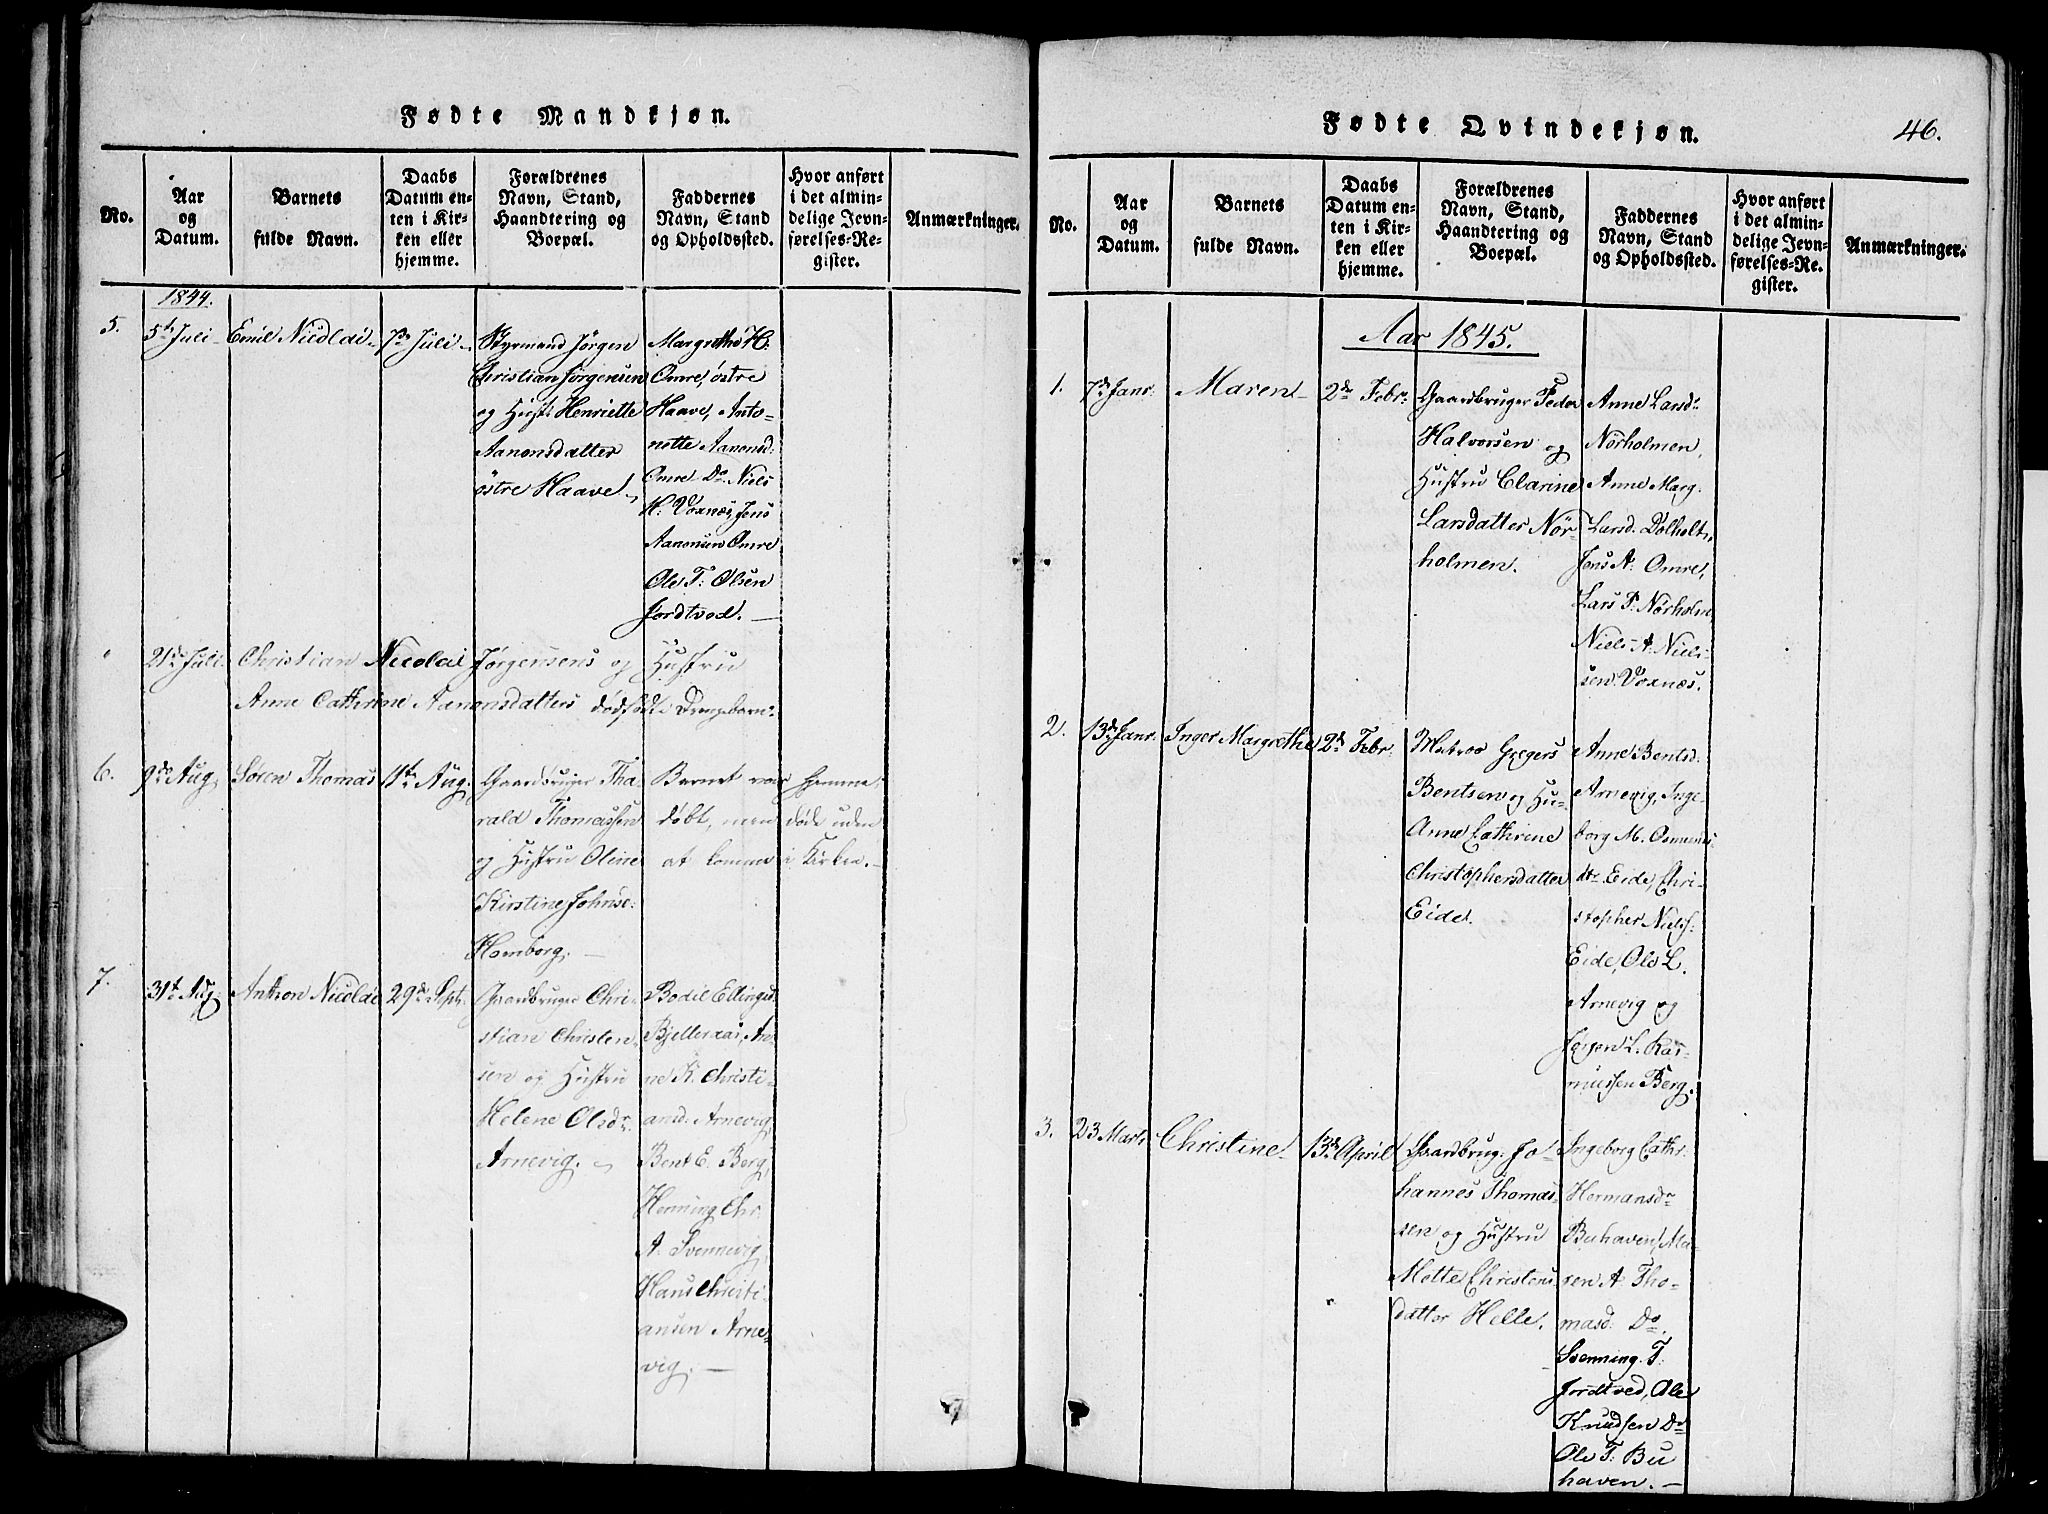 Fødte Mandkjøn.
No.
Aar
og
Datum.
Barnets
fulde Navn.
Daabs
Datum en-
ten i Kir-
ken eller
hjemme.
Forældrenes
Navn, Stand,
Haandtering og
Boepæl.
Faddernes
Navn, Stand
og Opholdssted.
Hvor anført
i det almin-
delige Jevn-
førelses-Re-
gister.
Anmærkninger.
1844.
5.
5te Juli
Emil Nicolai
7de Juli
Styrmand Jörgen
Christian Jörgensen
og Hust: Henriette
Aanonsdatter
östre Haave
Margrethe H:
Omre, östre
Haave, Anto-
nette Aanonsd:
Omre Do. Niels
H. Voxnes, Jens
Aanonsen Omre
Ole T: Olsen
Jordtved. —
21de Juli
Christian Nicolai Jörgensens og Hustru
Anne Cathrine Aanonsdatters dödfödte Drengebarn.
6.
9de Aug
Sören Thomas
11te Aug:
Gaardbruger Tha-
rald Thomassen
og Hustru Oline
Kirstine Johnsd:
Homborg. —
Barnet var hjemme-
döbt, men döde uden
at komme i Kirken. —
7.
31te Aug:
Anthon Nicolai
29de Sept:
Gaardbruger Chri-
stian Christen-
sen og Hustru
Helene Olsdr
Arnevig. —
Bodil Ellingsd.
Bjelleraas, An-
ne K. Christi-
ansd: Arnevig,
Bent E. Berg,
Henning Chr.
A. Svennevig,
Hans Christi-
ansen Arne-
vig. —
Fødte Qvindekjøn.
46.
No.
Aar
og
Datum.
Barnets
fulde Navn.
Daabs
Datum en-
ten i Kir-
ken eller
hjemme.
Forældrenes
Navn, Stand,
Haandtering og
Boepæl.
Faddernes
Navn, Stand
og Opholdssted.
Hvor anført
i det almin-
delige Jevn-
førelses-Re-
gister.
Anmærkninger.
Aar 1845.
1.
7de Janr:
Maren
2de Febr:
Gaardbruger Peder
Halvorsen og
Hustru Clarine
Larsdatter Nör-
holmen.
Anne Larsdr
Nörholmen,
Anne Marg.
Larsd. Dolholt,
Jens A: Omre,
Lars P. Nörholm,
Niels A. Niel-
sen Voxnæs.
2.
13de Janr.
Inger Margrethe
2de Febr.
Matros Gregers
Bentsen og Hu-
Anne Cathrine
Christophersdatter
Eide.
Anne Bentsd.
Arnevig, Inge-
borg M. Osmunds
dtr Eide, Chri-
stopher Niels:
Eide, Ole L.
Arnevig og
Jörgen L. Ras-
mussen Berg.
3.
23 Mart.
Christine
13de April
Gaardbrug: Jo-
hannes Thomas-
sen og Hustru
Mette Christens
datter Helle.
Ingeborg Cathr.
Hermansdr
Buhaven, Ma-
ren A Tho-
masd: Do.
Svenning T.
Jordtved, Ole
Knudsen Do
Ole T: Bu
haven. —